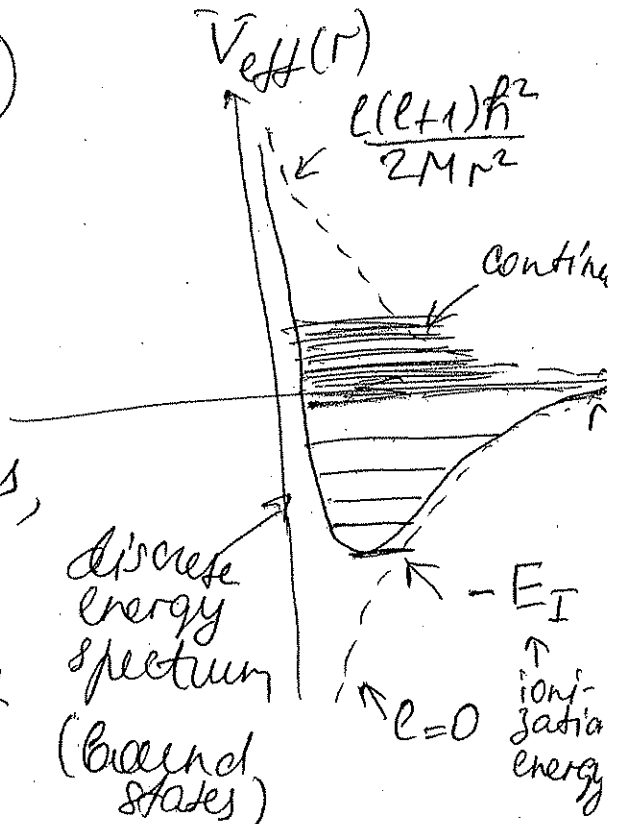 V_eff(r)
l(l+1)ħ²
2Mr²
contin
r
s,
discrete
energy
spectrum
(bound
states)
- E_I
l=0
ioni-
zatio
energy